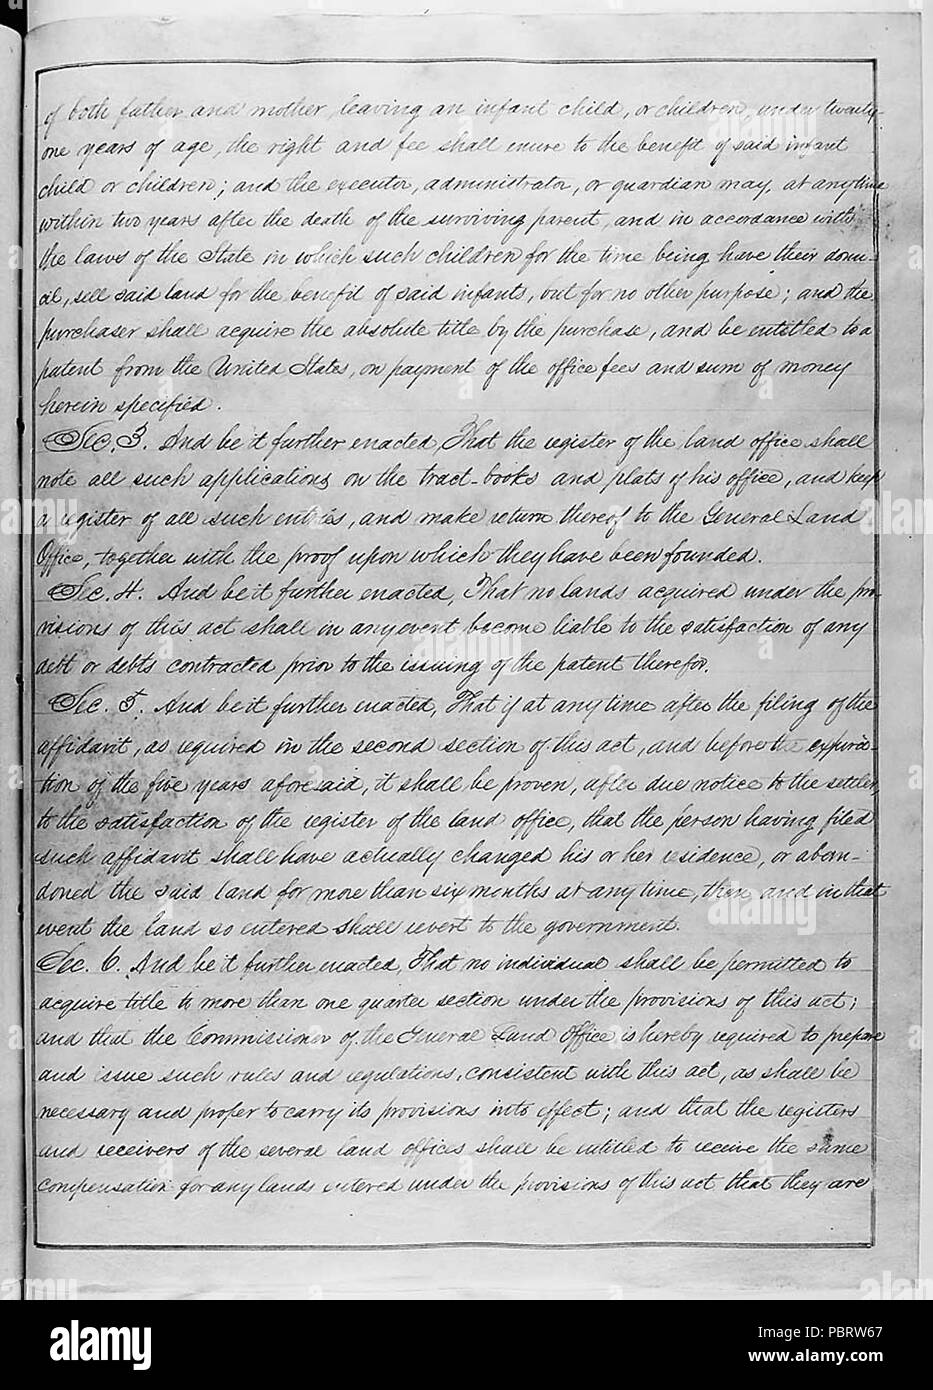 of both father and mother, leaving an infant child, or children, under twenty-
one years of age, the right and fee shall enure to the benefit of said infant
child or children; and the executor, administrator, or guardian may, at any time
within two years after the death of the surviving parent, and in accordance with
the laws of the State in which such children for the time being have their domi-
cil, sell said land for the benefit of said infants, but for no other purpose; and the
purchaser shall acquire the absolute title by the purchase, and be entitled to a
patent from the United States, on payment of the office fees and sum of money
herein specified.
Sec. 3. And be it further enacted, That the register of the land office shall
note all such applications on the tract-books and plats of his office, and keep
a register of all such entries, and make return thereof to the General Land
Office, together with the proof upon which they have been founded.
Sec. 4. And be it further enacted, That no lands acquired under the pro-
visions of this act shall in any event become liable to the satisfaction of any
debt or debts contracted prior to the issuing of the patent therefor.
Sec. 5. And be it further enacted, That if at any time after the filing of the
affidavit, as required in the second section of this act, and before the expira-
tion of the five years aforesaid, it shall be proven, after due notice to the settler,
to the satisfaction of the register of the land office, that the person having filed
such affidavit shall have actually changed his or her residence, or aban-
doned the said land for more than six months at any time, then and in that
event the land so entered shall revert to the government.
Sec. 6. And be it further enacted, That no individual shall be permitted to
acquire title to more than one quarter section under the provisions of this act;
and that the Commissioner of the General Land Office is hereby required to prepare
and issue such rules and regulations, consistent with this act, as shall be
necessary and proper to carry its provisions into effect; and that the registers
and receivers of the several land offices shall be entitled to receive the same
compensation for any lands entered under the provisions of this act that they are
alamy
Image ID: PBRW67
www.alamy.com